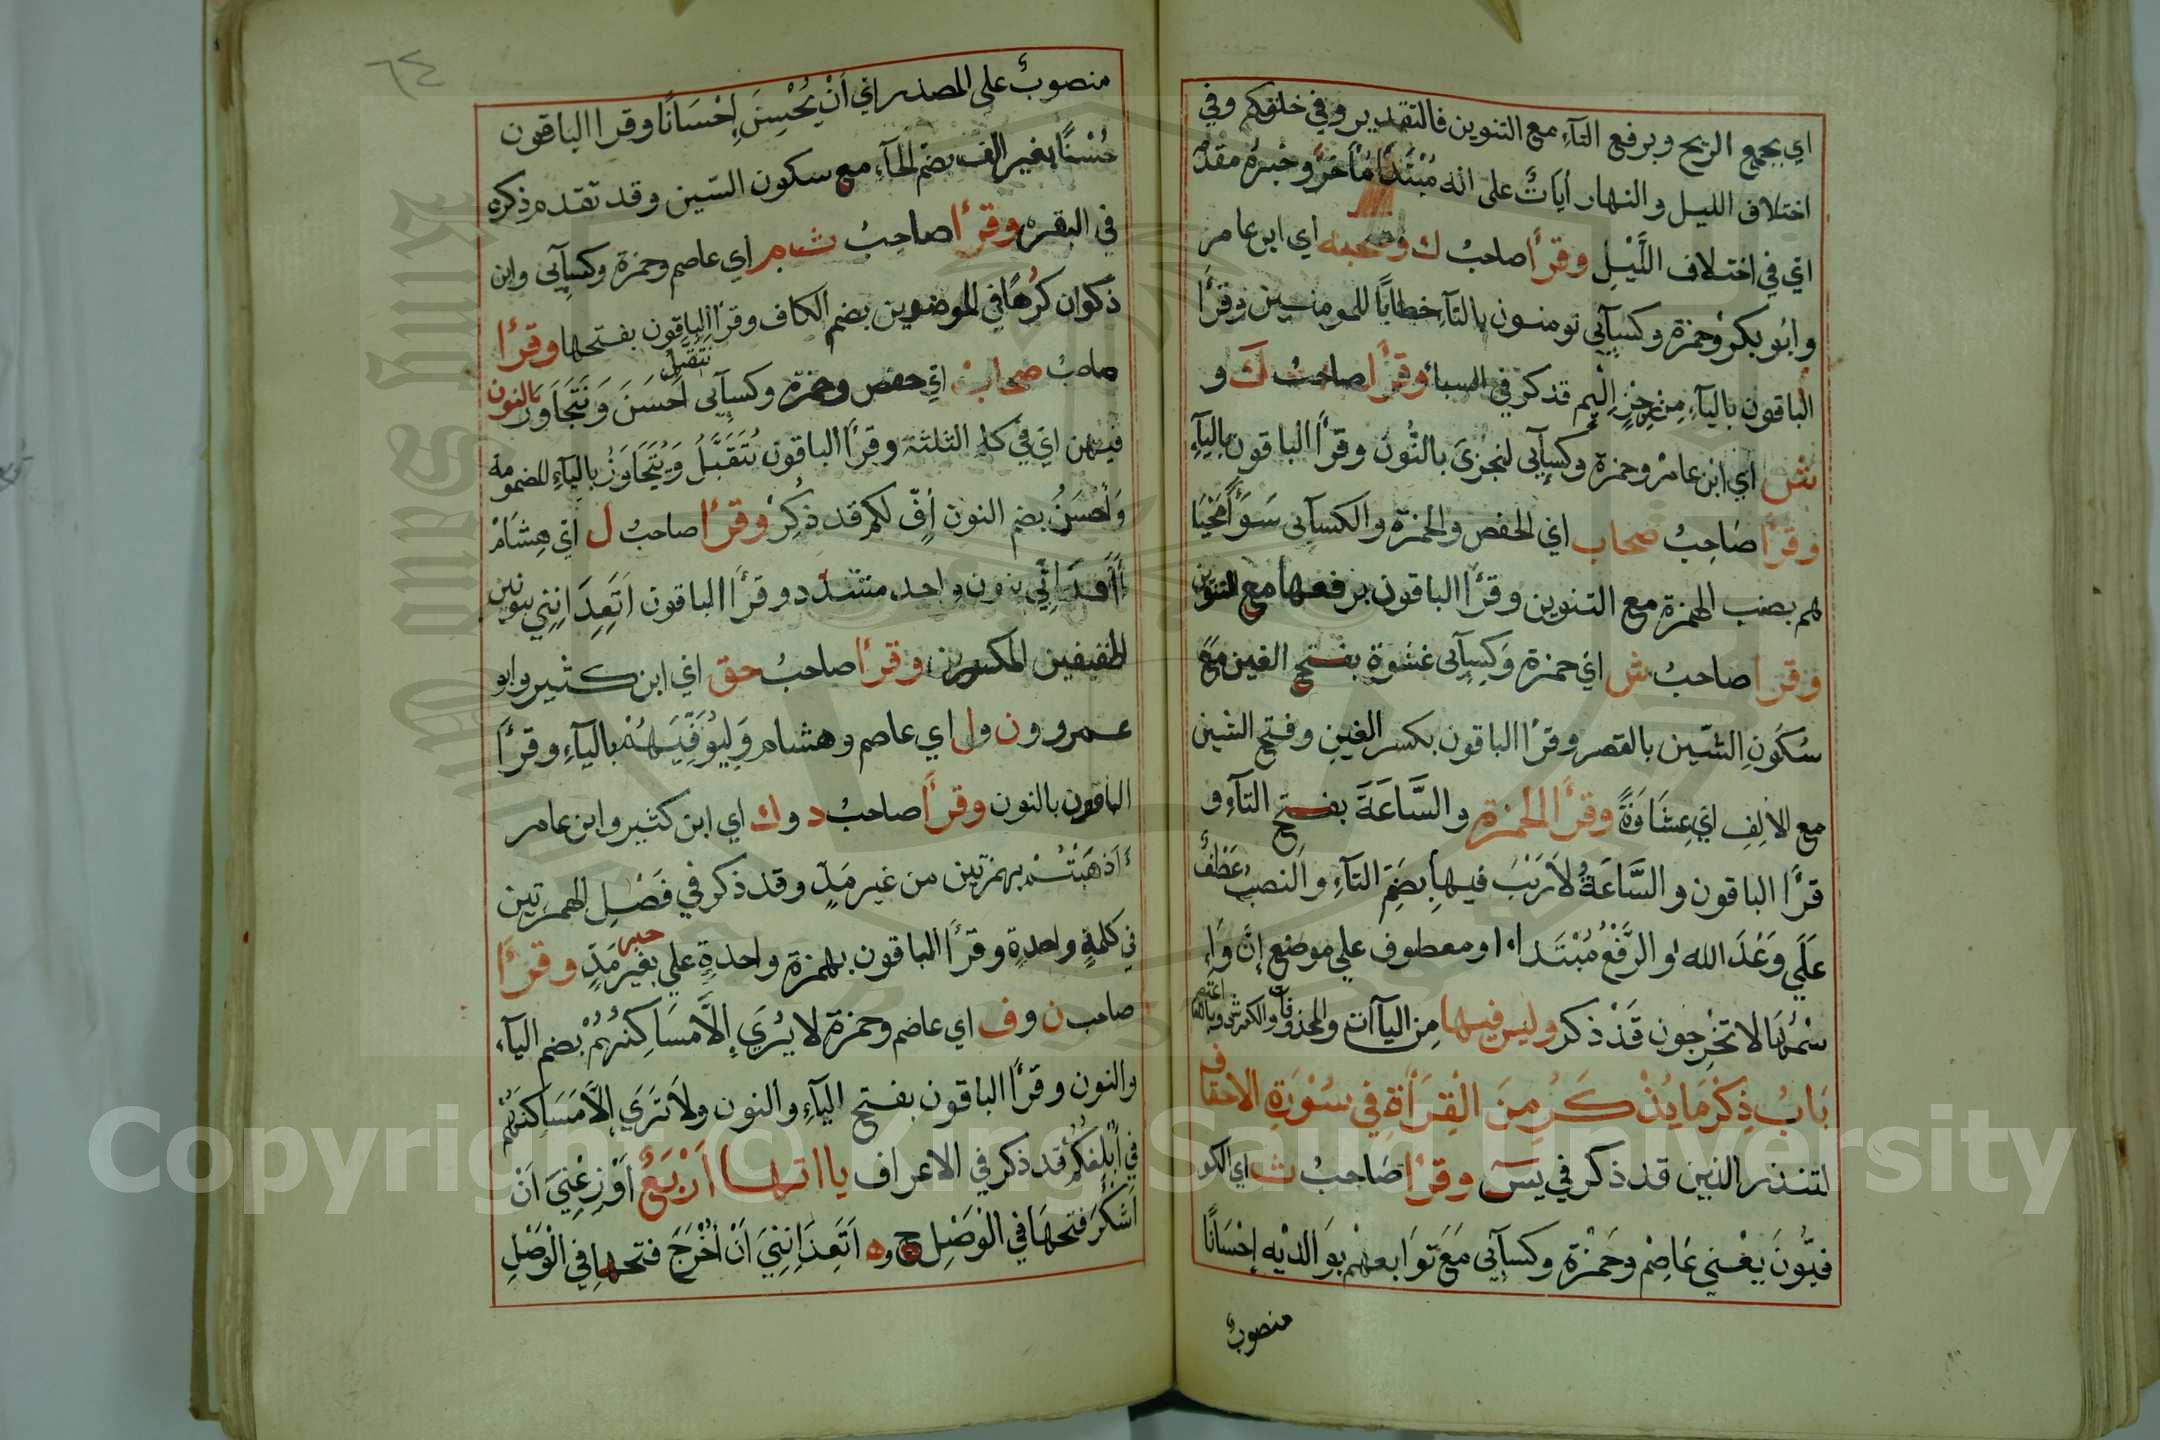 اي بجمع الريح وبرفع التآء مع التنوين فالتقدير وفي خلقكم وفي
اختلاف الليل والنهار أياتٌ على انه مُبْتَدأ مُأخَرٌ وخبرهُ مقدم
اي في اختلاف اللَّيْلِ وقرأ صاحبُ ك وصحبه اي ابن عامر
وابو بكر وحمزة وكسآئي تومنون بالتآء خطابًا للمومنين وقرأ
الباقون باليآء مِن رجزٍ اليم قد ذكر في السبا وقرأ صاحبُ ك و
ش اي ابن عامر وحمزة وكسآئي لنجزىَ بالنُّون وقرأ الباقون باليآء
وقرأ صاحِبُ صحاب اي الحفص والحمزة والكسآئي سَوَآءً مَّحْيَا
هم بصنب الهمزة مع التنوين وقرأ الباقون برفعها مع التنوين
وقرأ صاحبُ ش اي حمزة وَكسآئي غشوة بفتح الغين مَعَ
سُكونِ الشّين بالقصر وقرأ الباقون بكسر الغين وفتح الشين
مع الالِف اي غِشَاوَةً وقرأ الحمزة والسَّاعَةَ بفتح التآء و
قرأ الباقون والسَّاعَةُ لاَرَيْبَ فيها بضَمِّ التآءِ والنصبُ عَطْفٌ
عَلَي وَعْدَ الله والرَّفْعُ مُبْتَداء او معطوف علي موضع إنَّ وَاِ
سْمُهَا لا تخْرجون قَدْ ذكر وليس فيها مِن اليآات والمحذوفات
بَابُ ذِكْرِ مَا يُذْكَرُ مِنَ الْقِرَأةِ فِي سُوْرَةِ الاحقاف
لتنذر الذين قد ذكر في يَسَ وقرأ صَاحبُ ث اي الكو
فيُّونَ يعْني عَاصِمْ وحَمْزة وكسآئي مَعَ توَابعهْم بوَالدْيه إحْسَانًا
منصوبٌ
٦٤
منصوبٌ على المصدر اي اَنْ يُحْسِنَ اِحْسَانًا وقرا الباقون
حُسْنًا بغير الف بضم الحآء مع سكون السّين وقد تقدم ذكره
في البقره وقرأ صاحبُ ث م اي عاصم وحمزة وكسآئي وابن
ذكوان كُرْهًا في الموضوين بضم الكاف وقرأ الباقون بفتحها وقرأ
صاحبُ صحابْ اي حفص وحمزة وكسآئي نَتَقَبَّلُ اَحْسَنَ وَنَتَجَاوَز بالنون
فيهن اي في كلم الثلثة وقرأ الباقون يُتَقَبَّلُ وَيُتَجَاوَزُ باليآءِ المضمومة
وَاَحْسَنُ بضم النون اُفّ لكم قد ذُكِرْ وقرأ صاحبُ ل اي هِشَامْ
أَتَعِدَانِّي بنون واحد مشدّد وقرأ الباقون اَتَعِدَانِنِي بنونين
الخفيفين المكسورين وقرأ صاحبُ حق اي ابن كثير وابو
عمرو و ن و ل اي عاصم وهشام وَلِيُوَفِّيَهُمْ باليآءِ وقرأ
الباقون بالنون وقرأ صاحبُ د و ك اي ابن كثير وابن عامر
ءَاَذْهَبْتُمْ بهمزتين من غير مَدٍّ وقد ذكر في فَصْلِ الهمزتين
في كلمةٍ واحدةٍ وقرأ الباقون بهمزة واحدةٍ علي خبر بغير مَدٍّ وقرأ
صاحب ن وف اي عاضم وحمزة لا يُرَي إلاَّ مسَاكِنُهُمْ بضم اليآء
والنون وقرأ الباقون بفتح اليآءِ والنون ولاَ تَرَي إلاَّ مَسَاكنَهُمْ
في اُبْلِغُكُمْ قد ذكر في الاعراف يا اتها اَرْبَعٌ اَوْزِعْنِيَ اَنْ
اَشْكُرَ فتحهَا في الْوَصْلِ ج وه اَتَعِدَانِنِيَ اَنْ أُخْرَجَ فتحها في الْوَصْلِ
Copyright © King Saud University